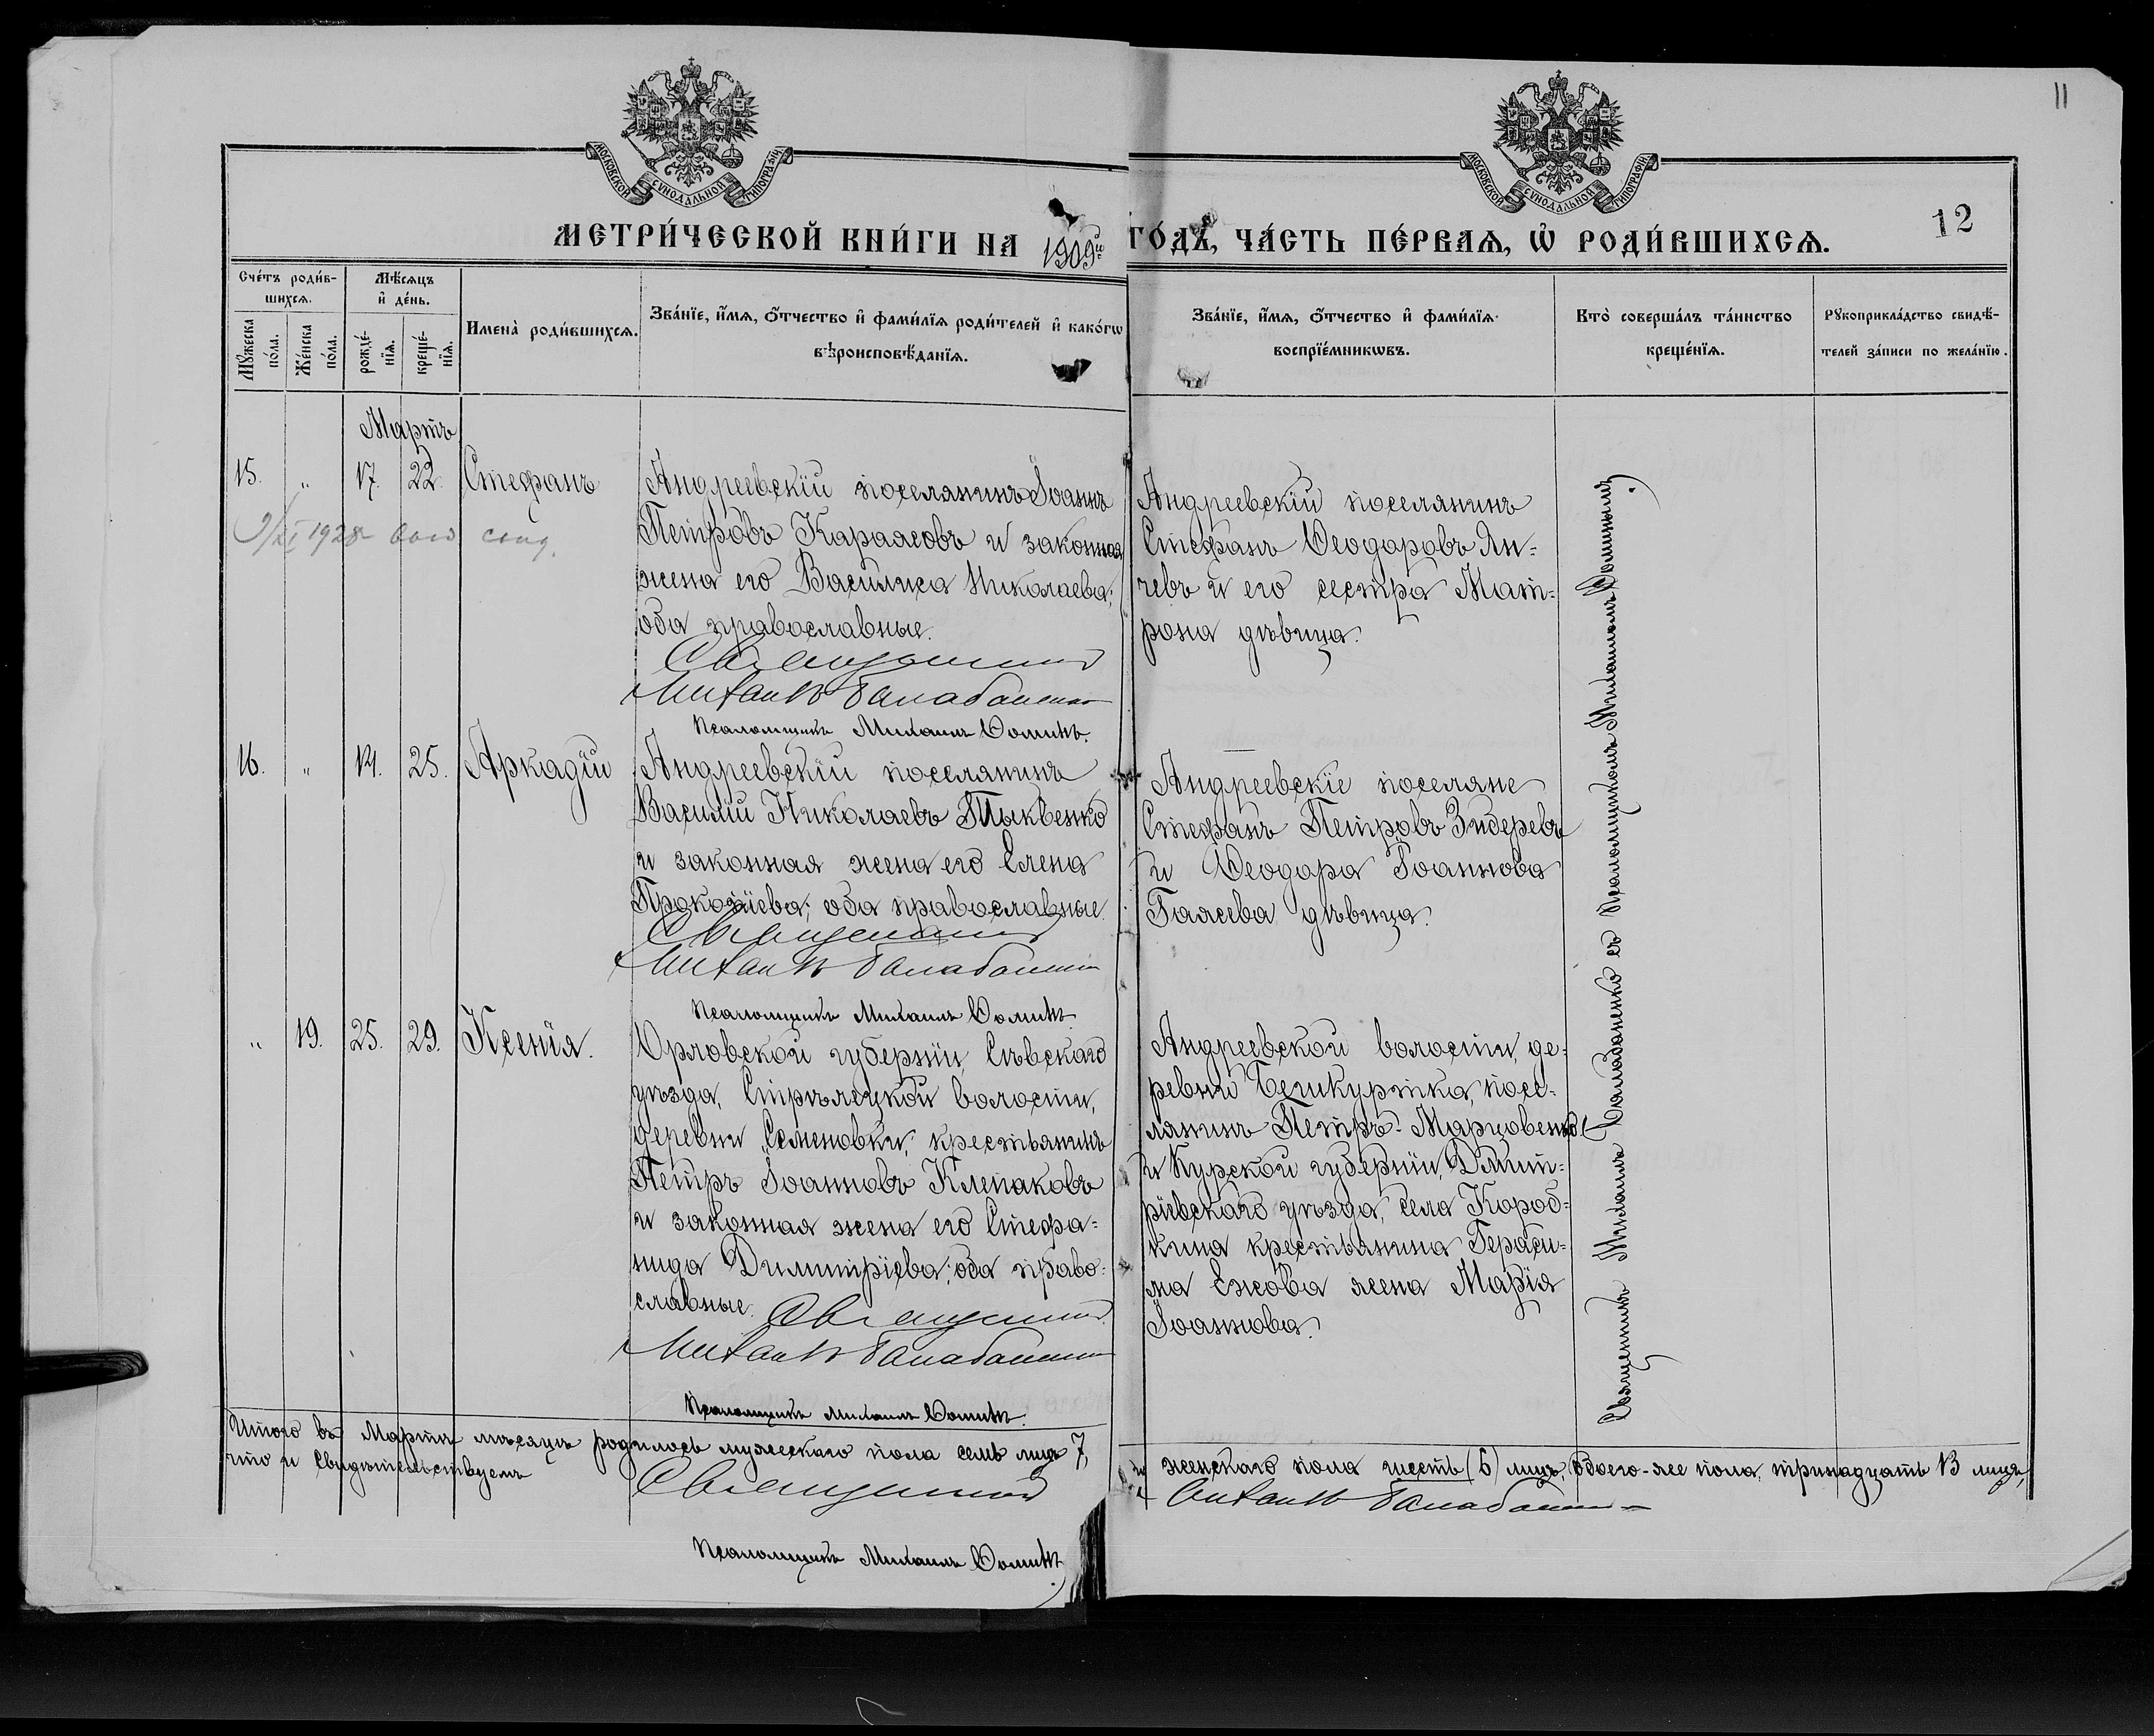 11
12
МОСКОВСКОЙ СѴНОДАЛЬНОЙ ТИПОГРАФІИ
МОСКОВСКОЙ СѴНОДАЛЬНОЙ ТИПОГРАФІИ
МЕТРИ́ЧЕСКОЙ КНИ́ГИ НА 1909й ГО́ДЪ, ЧА́СТЬ ПЕ́РВАѦ, Ѡ҆ РОДИ́ВШИХСѦ.
Сче́тъ роди́в-
шихсѧ.
Мꙋжеска
по́ла.
Же́нска
по́ла.
Мѣ́сѧцъ
и҆ де́нь.
рожде́-
нїѧ.
креще́-
нїѧ.
Имена̀ роди́вшихсѧ.
Зва́нїе, и҆́мѧ, ѻ҆́тчество и҆ фами́лїѧ роди́телей и҆ како́гѡ
вѣроисповѣ́данїѧ.
Зва́нїе, и҆́мѧ, ѻ҆́тчество и҆ фами́лїѧ
воспрїе́мникѡвъ.
Кто̀ соверша́лъ та́инство
креще́нїѧ.
Рꙋкоприкла́дство свидѣ́-
телей за́писи по жела́нїю.
Мартъ
15. " 17. 22. Стефанъ
9/XI 1928
Андреевскій поселянинъ Іоаннъ
Петровъ Карагеовъ и законная
жена его Василиса Николаева;
оба православные.
Священникъ
Михаилъ Балабаненко
Псаломщикъ Михаилъ Ѳоминъ.
Андреевскій поселянинъ
Стефанъ Ѳеодоровъ Ян-
чевъ и его сестра Мат-
рона дѣвица.
16. " 14. 25. Аркадій
Андреевскій поселянинъ
Василій Николаевъ Тыквенко
и законная жена его Елена
Прокопіева; оба православные.
Священникъ
Михаилъ Балабаненко
Псаломщикъ Михаилъ Ѳоминъ.
Андреевскіе поселяне
Стефанъ Петровъ Зидеревъ
и Ѳеодора Іоаннова
Гаяева дѣвица.
" 19. 25. 29. Ксенія.
Орловской губерніи, Сѣвскаго
уѣзда, Стрѣлецкой волости,
деревни Семеновки, крестьянинъ
Петръ Іоанновъ Клепаковъ
и законная жена его Стефа-
нида Димитріева; оба право-
славные. Священникъ
Михаилъ Балабаненко
Псаломщикъ Михаилъ Ѳоминъ.
Андреевской волости, де-
ревни Бешкуртка, посе-
лянинъ Петръ Марцовенко
и Курской губерніи, Дмит-
ріевскаго уѣзда, села Короб-
кина крестьянина Гераси-
ма Ежова жена Марія
Іоаннова.
Священникъ Михаилъ Балабаненко съ Псаломщикомъ Михаиломъ Ѳоминымъ.
Итого въ Мартѣ мѣсяцѣ родилось мужескаго пола семь лицъ 7, и женскаго пола шесть (6) лицъ, обоего-же пола тринадцать 13 лицъ,
что и свидѣтельствуемъ
Священникъ Михаилъ Балабаненко
Псаломщикъ Михаилъ Ѳоминъ